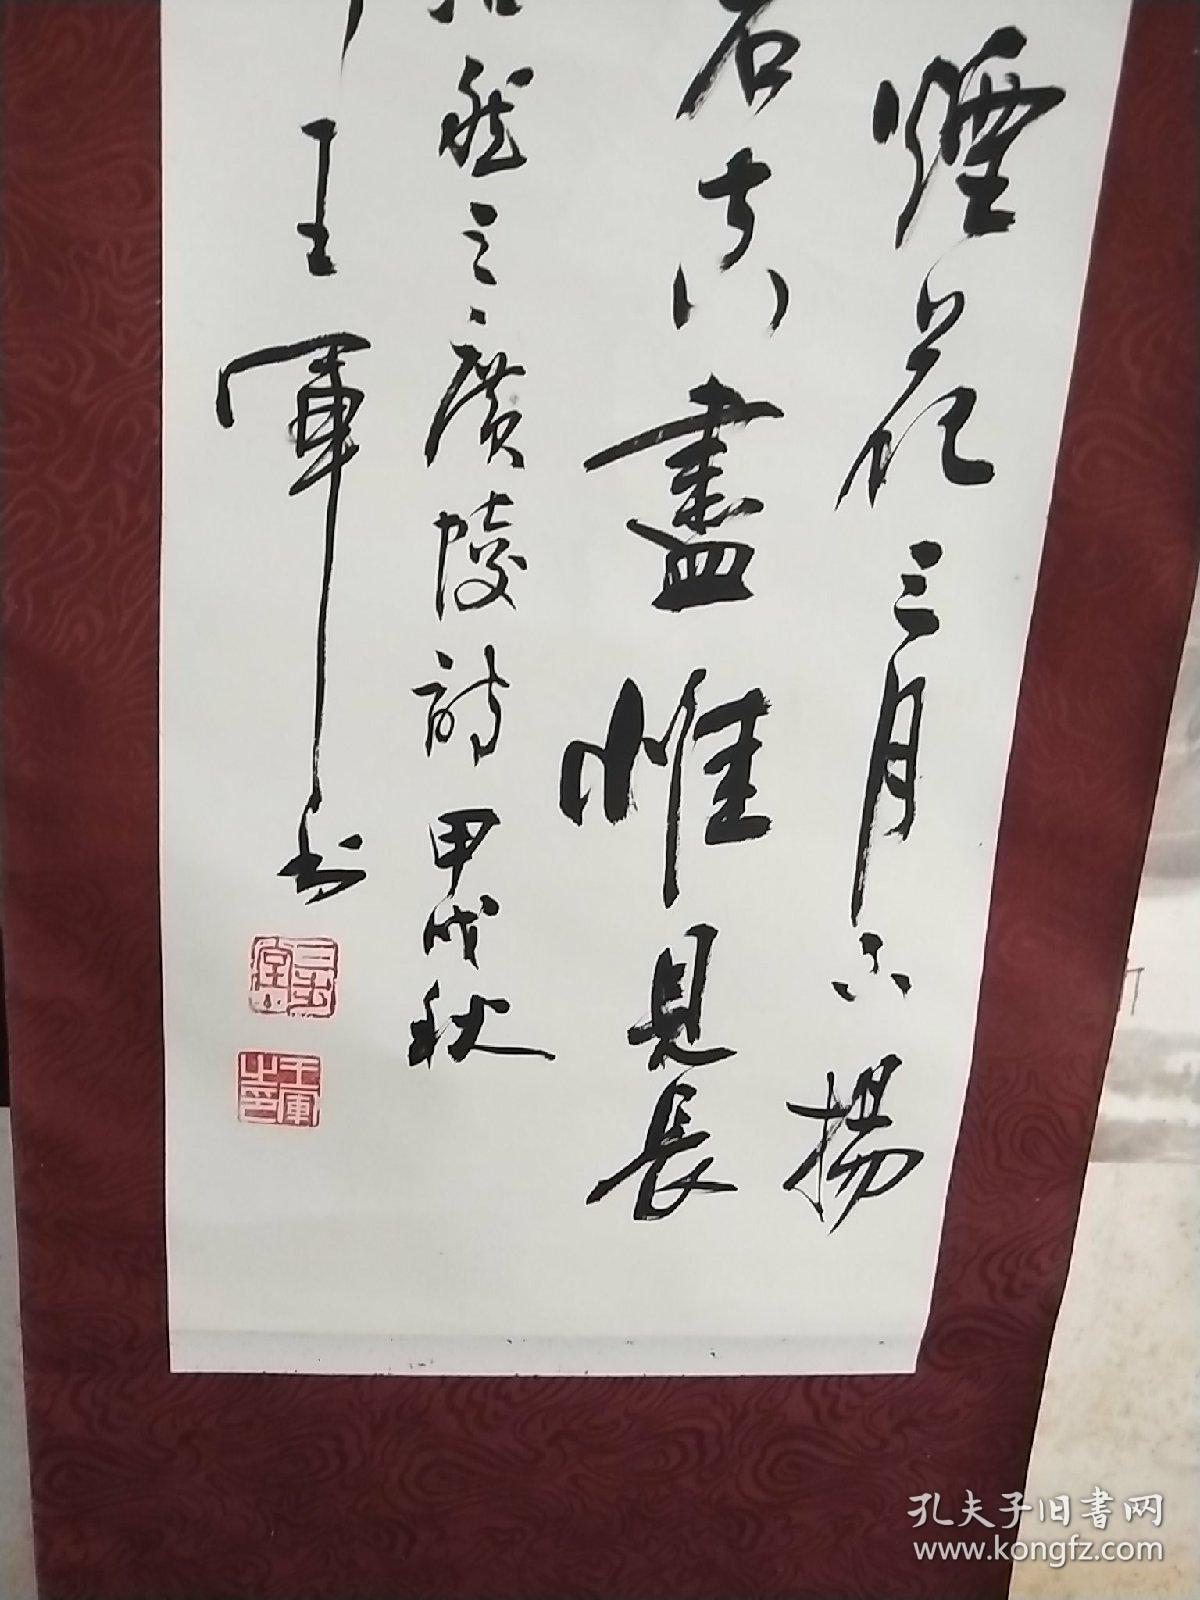 煙花三月下揚
空盡惟見長
然之廣陵詩甲戌秋
王軍书
王軍之印
孔夫子旧書网
www.kongfz.com